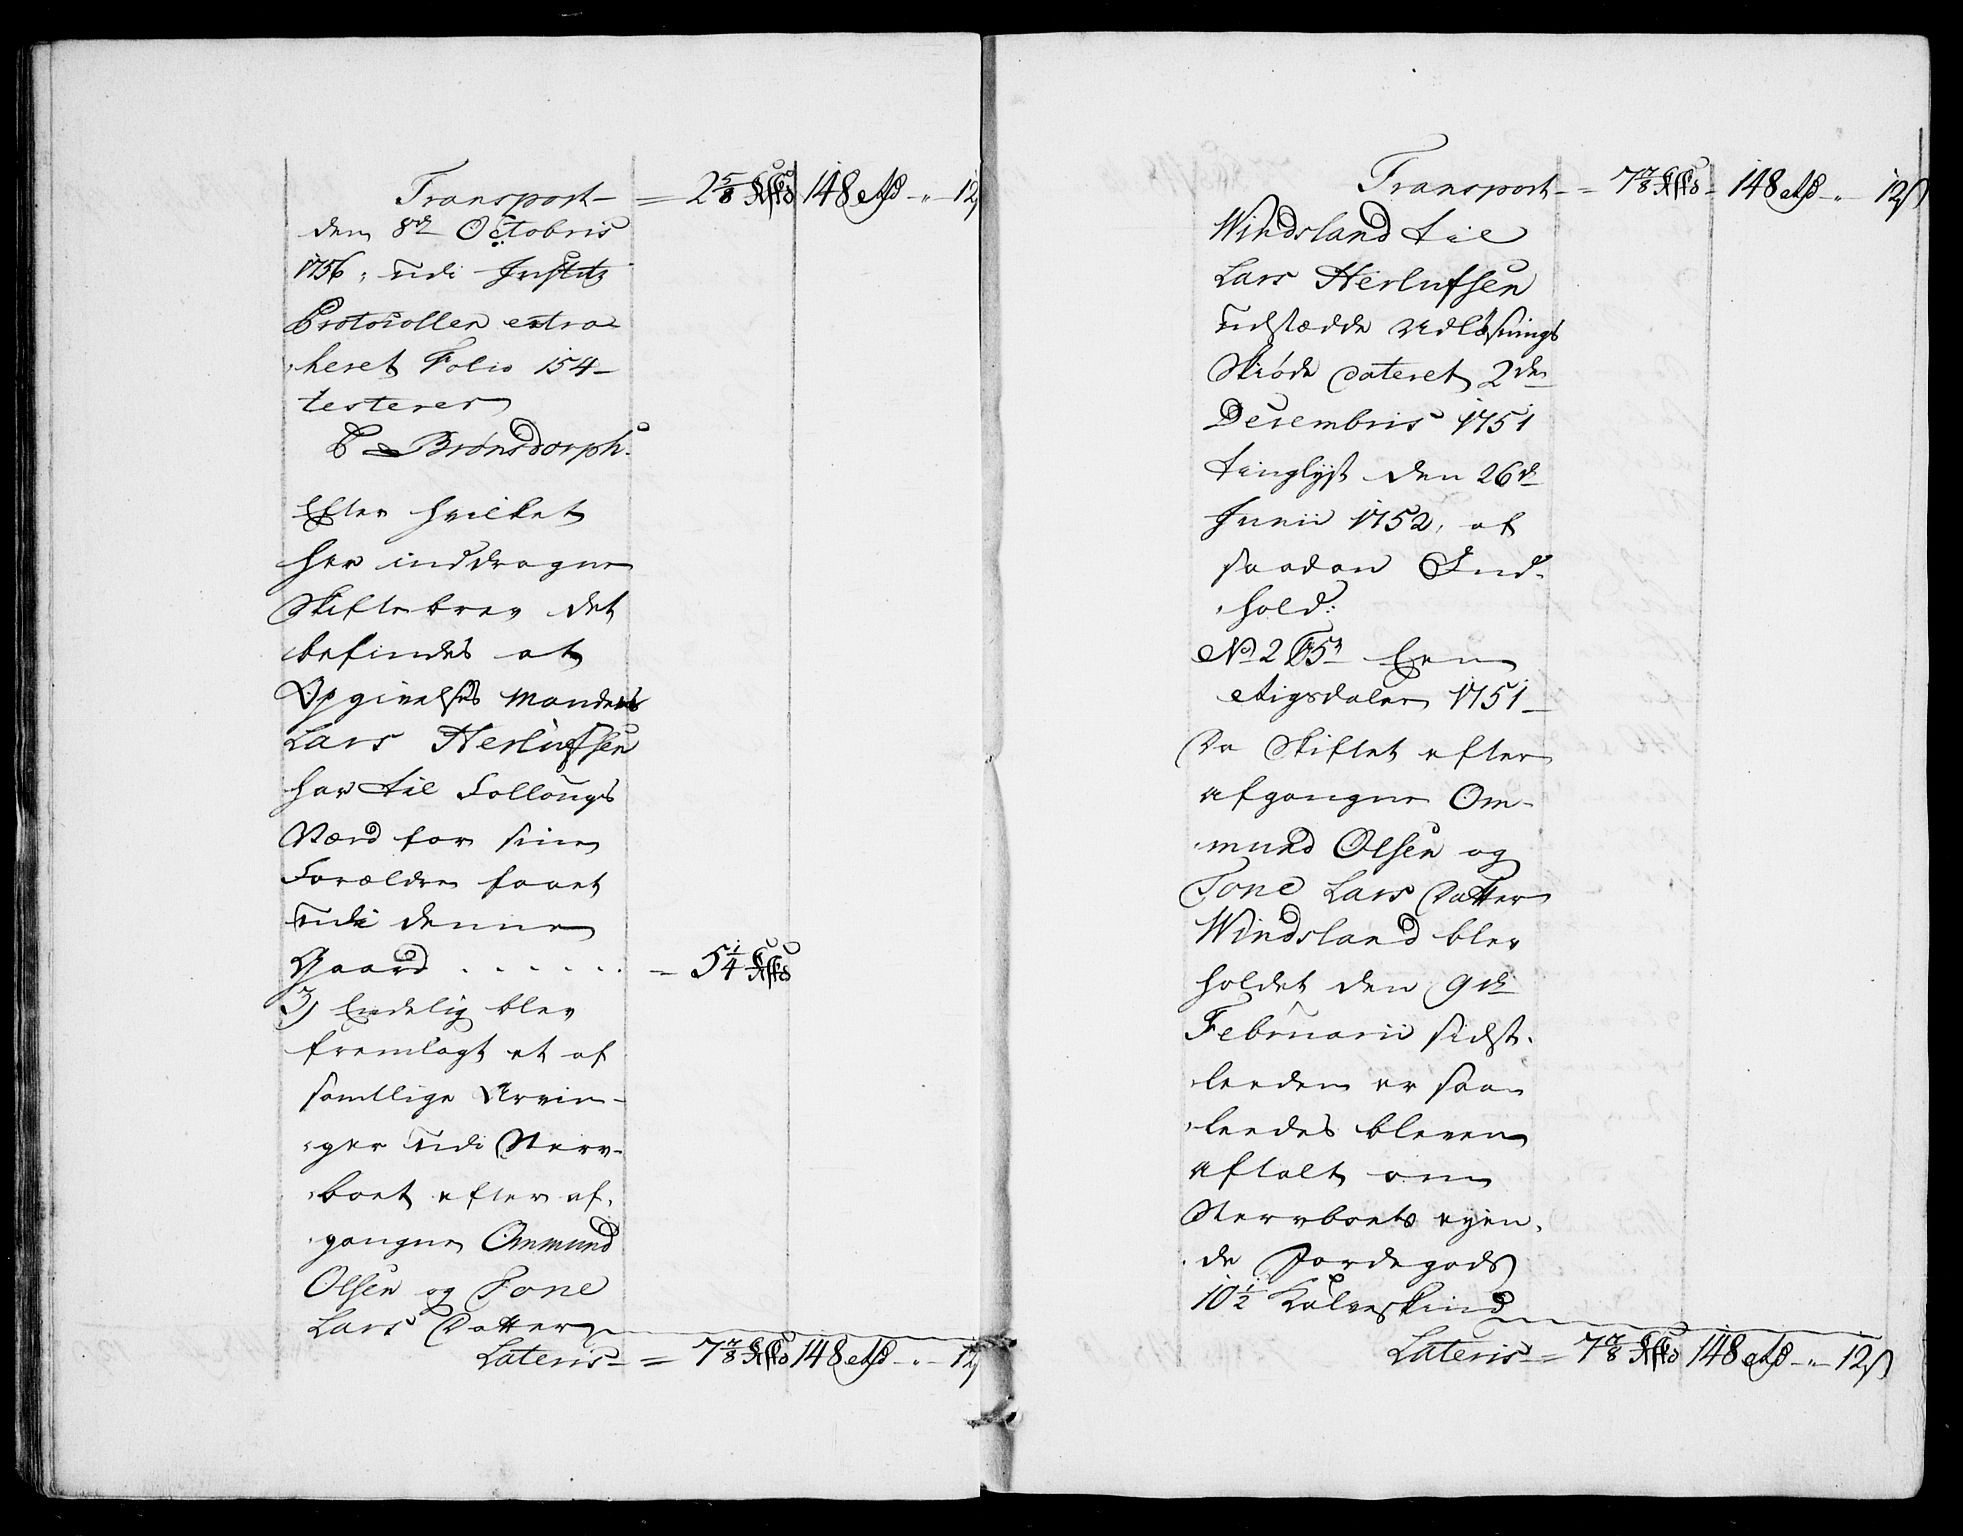 Transport — = 2 5/8 Kskd 148 Rd — " — 12ß
den 8de Octobris
1756, udi Justitz
Protocollen extra-
heret Folio 154 —
testerer
C Brønsdorph.
Efter hvilket
her inddragne
Skiftebrev det
befindes at
Opgivelses Manden
Lars Herlufsen
har til Føllougs
Værd for sine
Forældre faaet
udi denne
Gaard . . . . . . — 5 1/4 Kskd
3) Endelig blev
fremlagt et af
samtlige Arvin-
ger udi Sterv-
boet efter af-
gangne Ommund
Olsen og Tone
Lars Datter
Lateris — = 7 7/8 Kskd 148 Rd — " — 12ß
Transport — = 7 7/8 Kskd — 148 Rd — " — 12ß
Windsland til
Lars Herlufsen
udstædde Udløsnings
Skiøde dateret 2den
Decembris 1751
tinglyst den 26de
Junii 1752, af
saadan Ind-
hold:
No 2 Een
Rigsdaler 1751 —
Da Skiftet efter
afgangne Om-
mund Olsen og
Tone Lars Datter
Windsland blev
holdet den 9de
Februarii sidst-
leeden er saa-
leedes bleven
aftalt om
Stervboets eyen-
de Jordegods
10 1/2 Kalveskind
Lateris — = 7 7/8 Kskd 148 Rd — " — 12ß